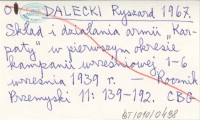 DALECKI Ryszard 1967.
Skład i działania armii „Kar-
paty" w pierwszym okresie
kampanii wrześniowej 1-6
września 1939 r. — Rocznik
Przemyski 11: 139-192. CBG
BT1010/0488